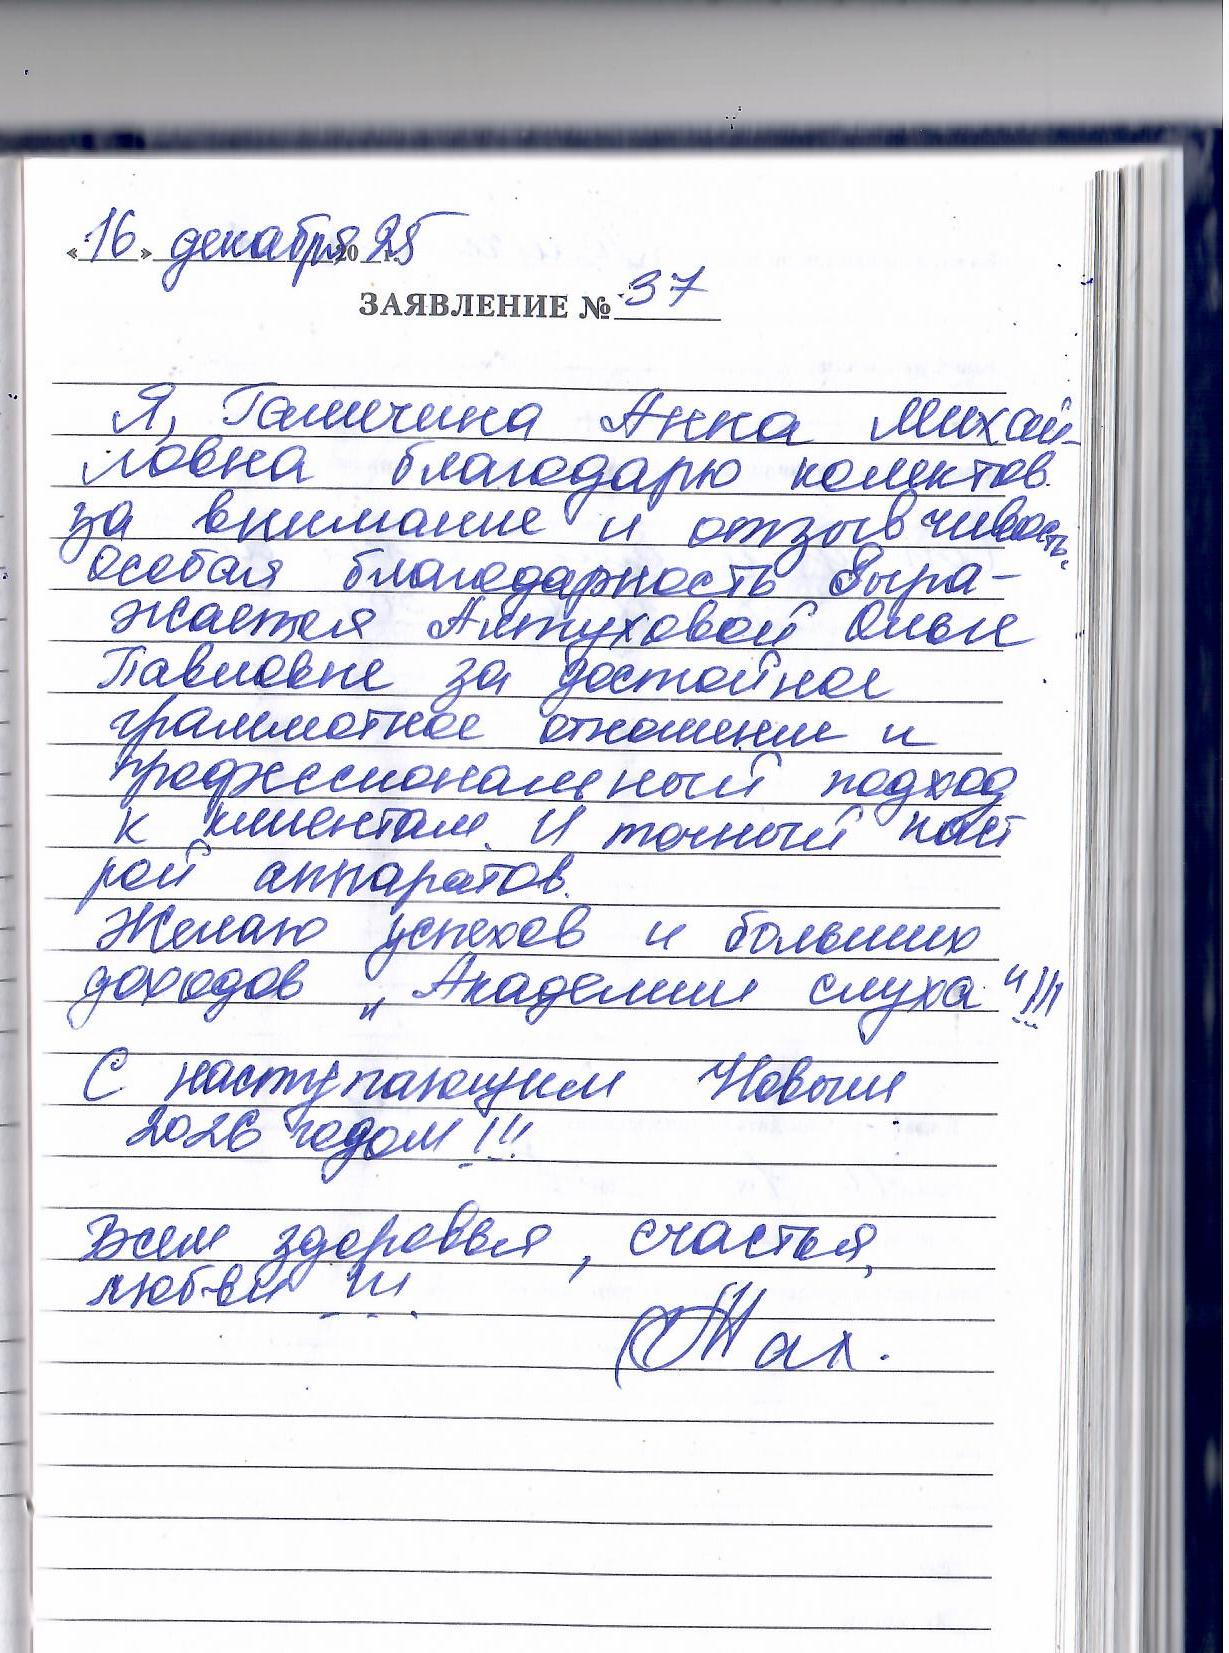 «16» декабря 2025 г.
ЗАЯВЛЕНИЕ № 37
Я, Галичина Анна Михай-
ловна благодарю колектов.
за внимание и отзывчивость.
Особая благодарность выра-
жается Алтуховой Ольге
Павловне за достойное
грамотное отношение и
профессиональный подход
к клиентам. И точный наст
рой аппаратов.
Желаю успехов и больших
доходов „Академии слуха"!!!
С наступающим Новым
2026 годом!!!
Всем здоровья, счастья,
любви !!!